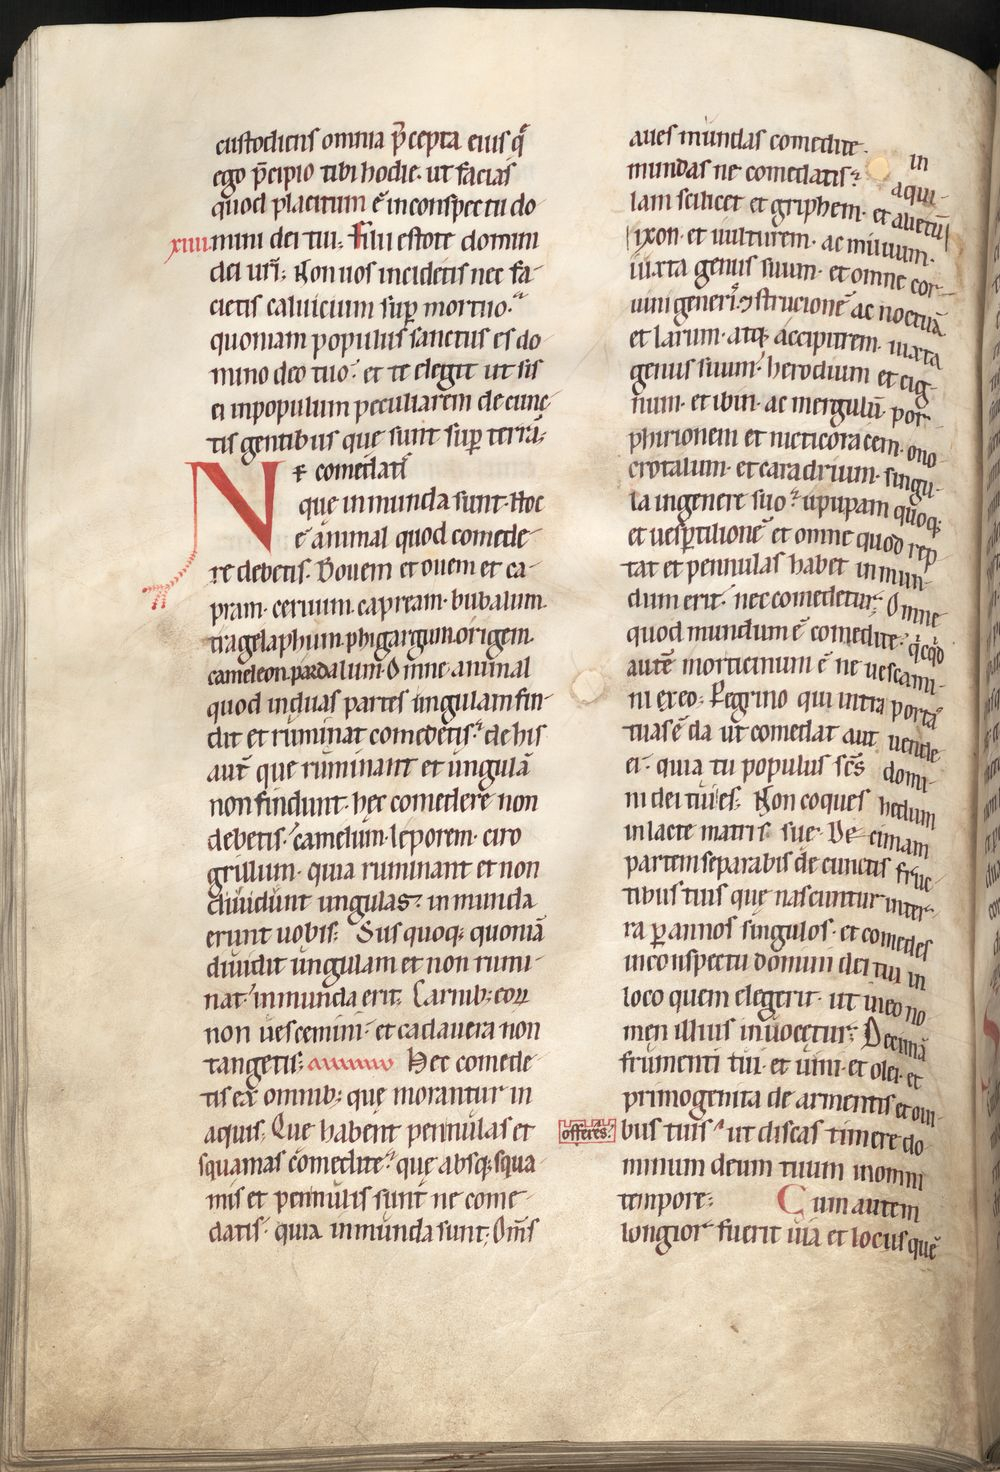 custodiens omnia p̄cepta eius q̄
ego p̄cipio tibi hodie· ut facias
quod placitum ē inconspectu do-
xiiii. mini dei tui; Filii estote domini
dei ur̄i; Non uos incidetis nec fa-
cietis caluicium sup̱ mortuo.
quoniam populus sanctus es do-
mino deo tuo· et te elegit ut sis
ei inpopulum peculiarem de cunc-
tis gentibus que sunt sup̱ terrā;
Ne comedatꝭ
quę inmunda sunt· Hoc
ē animal quod comede-
re debetis. Bouem et ouem et ca-
pram· ceruum. capream· bubalum.
tragelaphum. phigargum. origem.
cameleon. pardalum. Omne animal
quod induas partes ungulam fin-
dit et ruminat comedetis· de his
aut̄ que ruminant et ungulā
non findunt· hęc comedere non
debetis· camelum· leporem· ciro
grillum· quia ruminant et non
diuidunt ungulas· inmunda
erunt uobis; Sus quoq; quoniā
diuidit ungulam et non rumi-
nat· inmunda erit; Carnib; eoꝝ
non uescemini· et cadauera non
tangetis; Hec comede-
tis ex omnib; quę morantur in
aquis; Que habent pennulas et
squamas comedite· quę absq; squa-
mis et pennulis sunt ne come-
datis· quia inmunda sunt; Om̄s
aues mundas comedite· in
mundas ne comedatis· aqui-
lam scilicet et griphem· et aliетū
ixon· et uulturem· ac miluum·
iuxta genus suum· et omne cor-
uini generis· ⁊ strucionē ac noctuā
et larum· atq; accipitrem· iuxta
genus suum· herodium et cig-
num· et ibin· ac mergulū· por-
phirionem et nicticoracem· ono-
crotalum· et caradrium· singu-
la ingenere suo· upupam quoq;
et uesp̱tilionē et omne quod rep-
tat et pennulas habet inmun-
dum erit· nec comedetur; Omne
quod mundum ē comedite· q̇cq̇d
autē morticinum ē ne uescami-
ni ex eo; Peregrino qui intra portā
tuas ē da ut comedat aut uende
ei· quia tu populus sc̄s domi-
ni dei tui es; Non coques hedum
in lacte matris sue· Decimam
partem separabis de cunctis fruc-
tibus tuis quę nascuntur inter-
ra p̱ annos singulos· et comedes
inconspectu domini dei tui in
loco quem elegerit· ut ineo no
men illius inuocetur; Decimā
frumenti tui· et uini· et olei· et
primogenita de armentis et oui-
offeres. bus tuis· ut discas timere do
minum deum tuum inomni
tempore; Cum autem
longior fuerit uia et locus quē